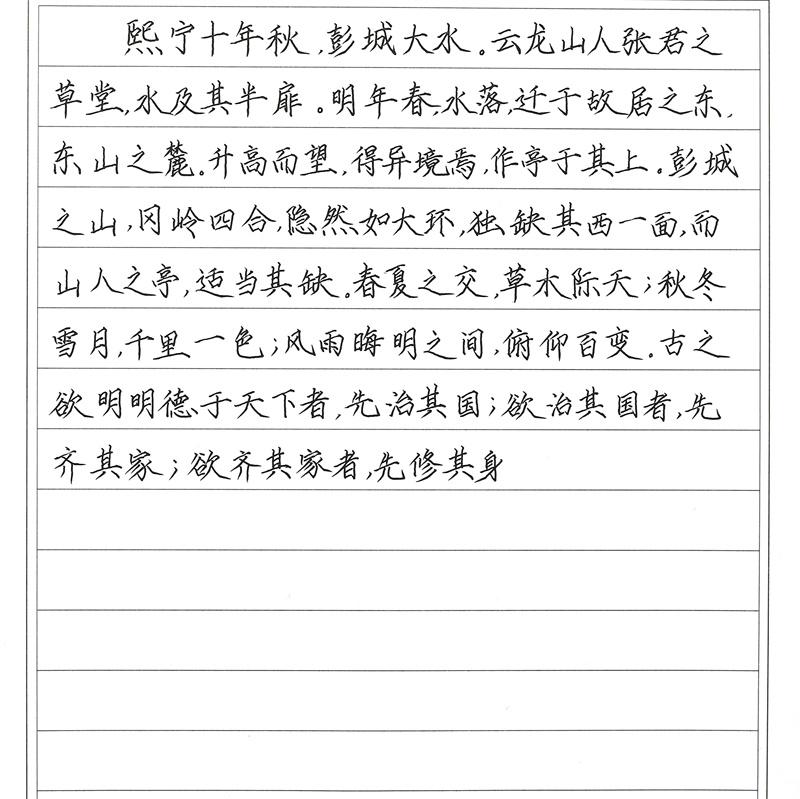 熙宁十年秋,彭城大水。云龙山人张君之
草堂,水及其半扉。明年春,水落,迁于故居之东,
东山之麓。升高而望,得异境焉,作亭于其上。彭城
之山,冈岭四合,隐然如大环,独缺其西一面,而
山人之亭,适当其缺。春夏之交,草木际天;秋冬
雪月,千里一色;风雨晦明之间,俯仰百变。古之
欲明明德于天下者,先治其国;欲治其国者,先
齐其家;欲齐其家者,先修其身